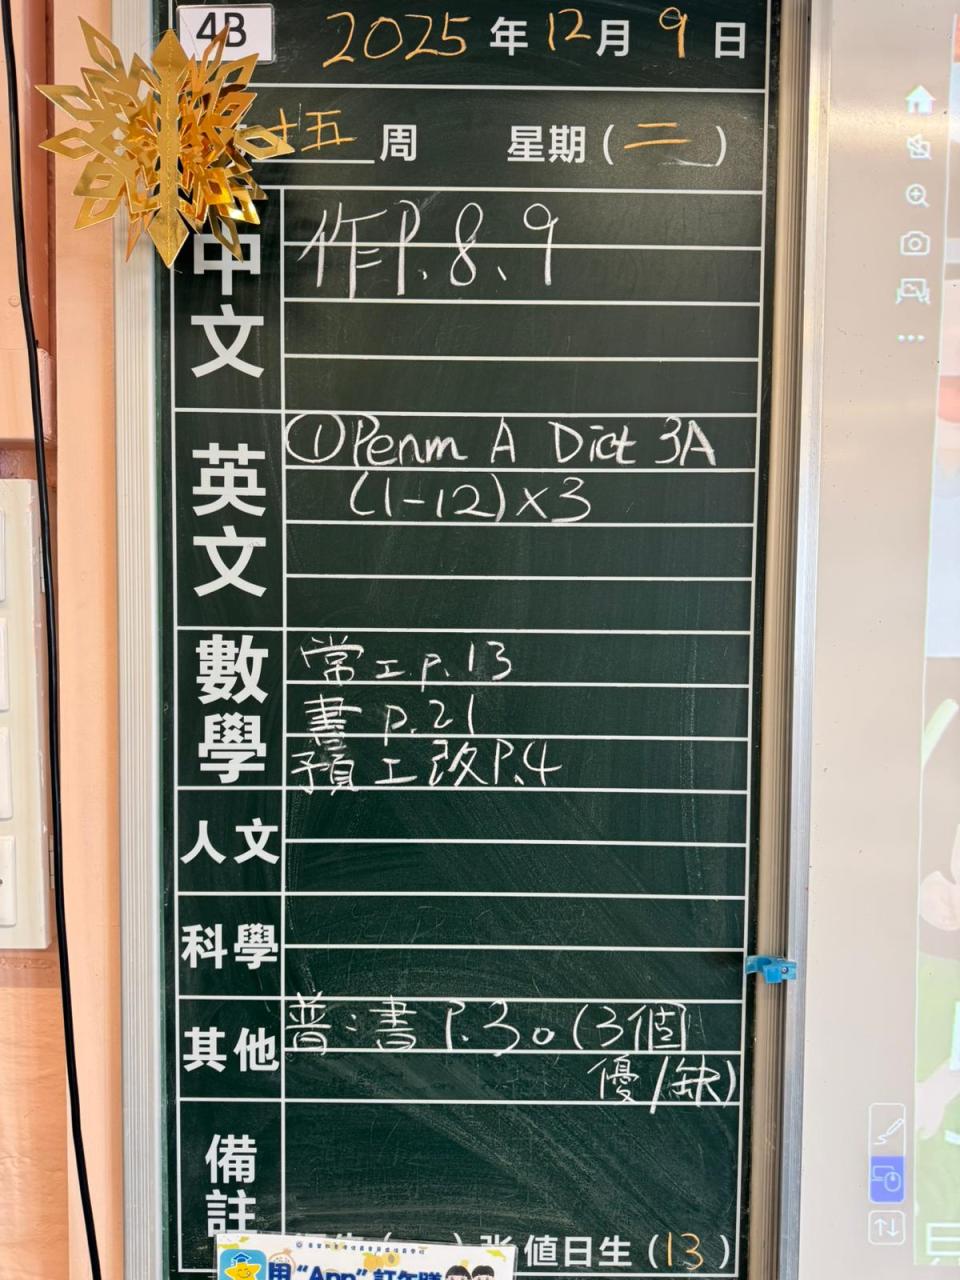 4B
2025 年 12 月 9 日
十五 周 星期 ( 二 )
中文
作P.8、9
英文
①Penm A Dict 3A
(1-12)×3
數學
常工P.13
書 P.21
預工改P.4
人文
科學
其他
普:書P.30(3個
優/缺)
備註
值日生 (13)
用 "App" 訂午膳